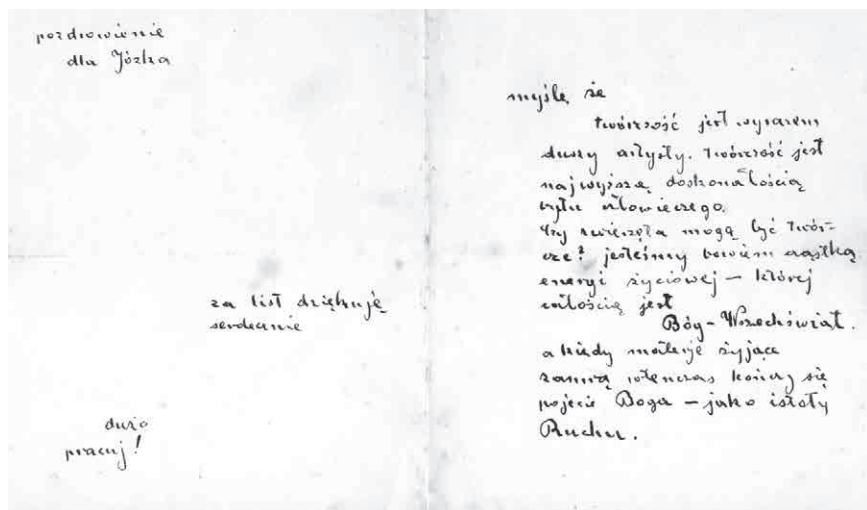 pozdrowienie
dla Józka
za list dziękuję
serdecznie
dużo
pracuj!
myślę że
twórczość jest wyrazem
duszy artysty. twórczość jest
najwyższą doskonałością
bytu człowieczego.
Czy zwierzęta mogą być twór-
cze? jesteśmy bowiem cząstką
energi życiowej – której
całością jest
Bóg – Wszechświat.
a kiedy materje żyjące
zamrą wtenczas kończy się
pojęcie Boga – jako istoty
Ruchu.